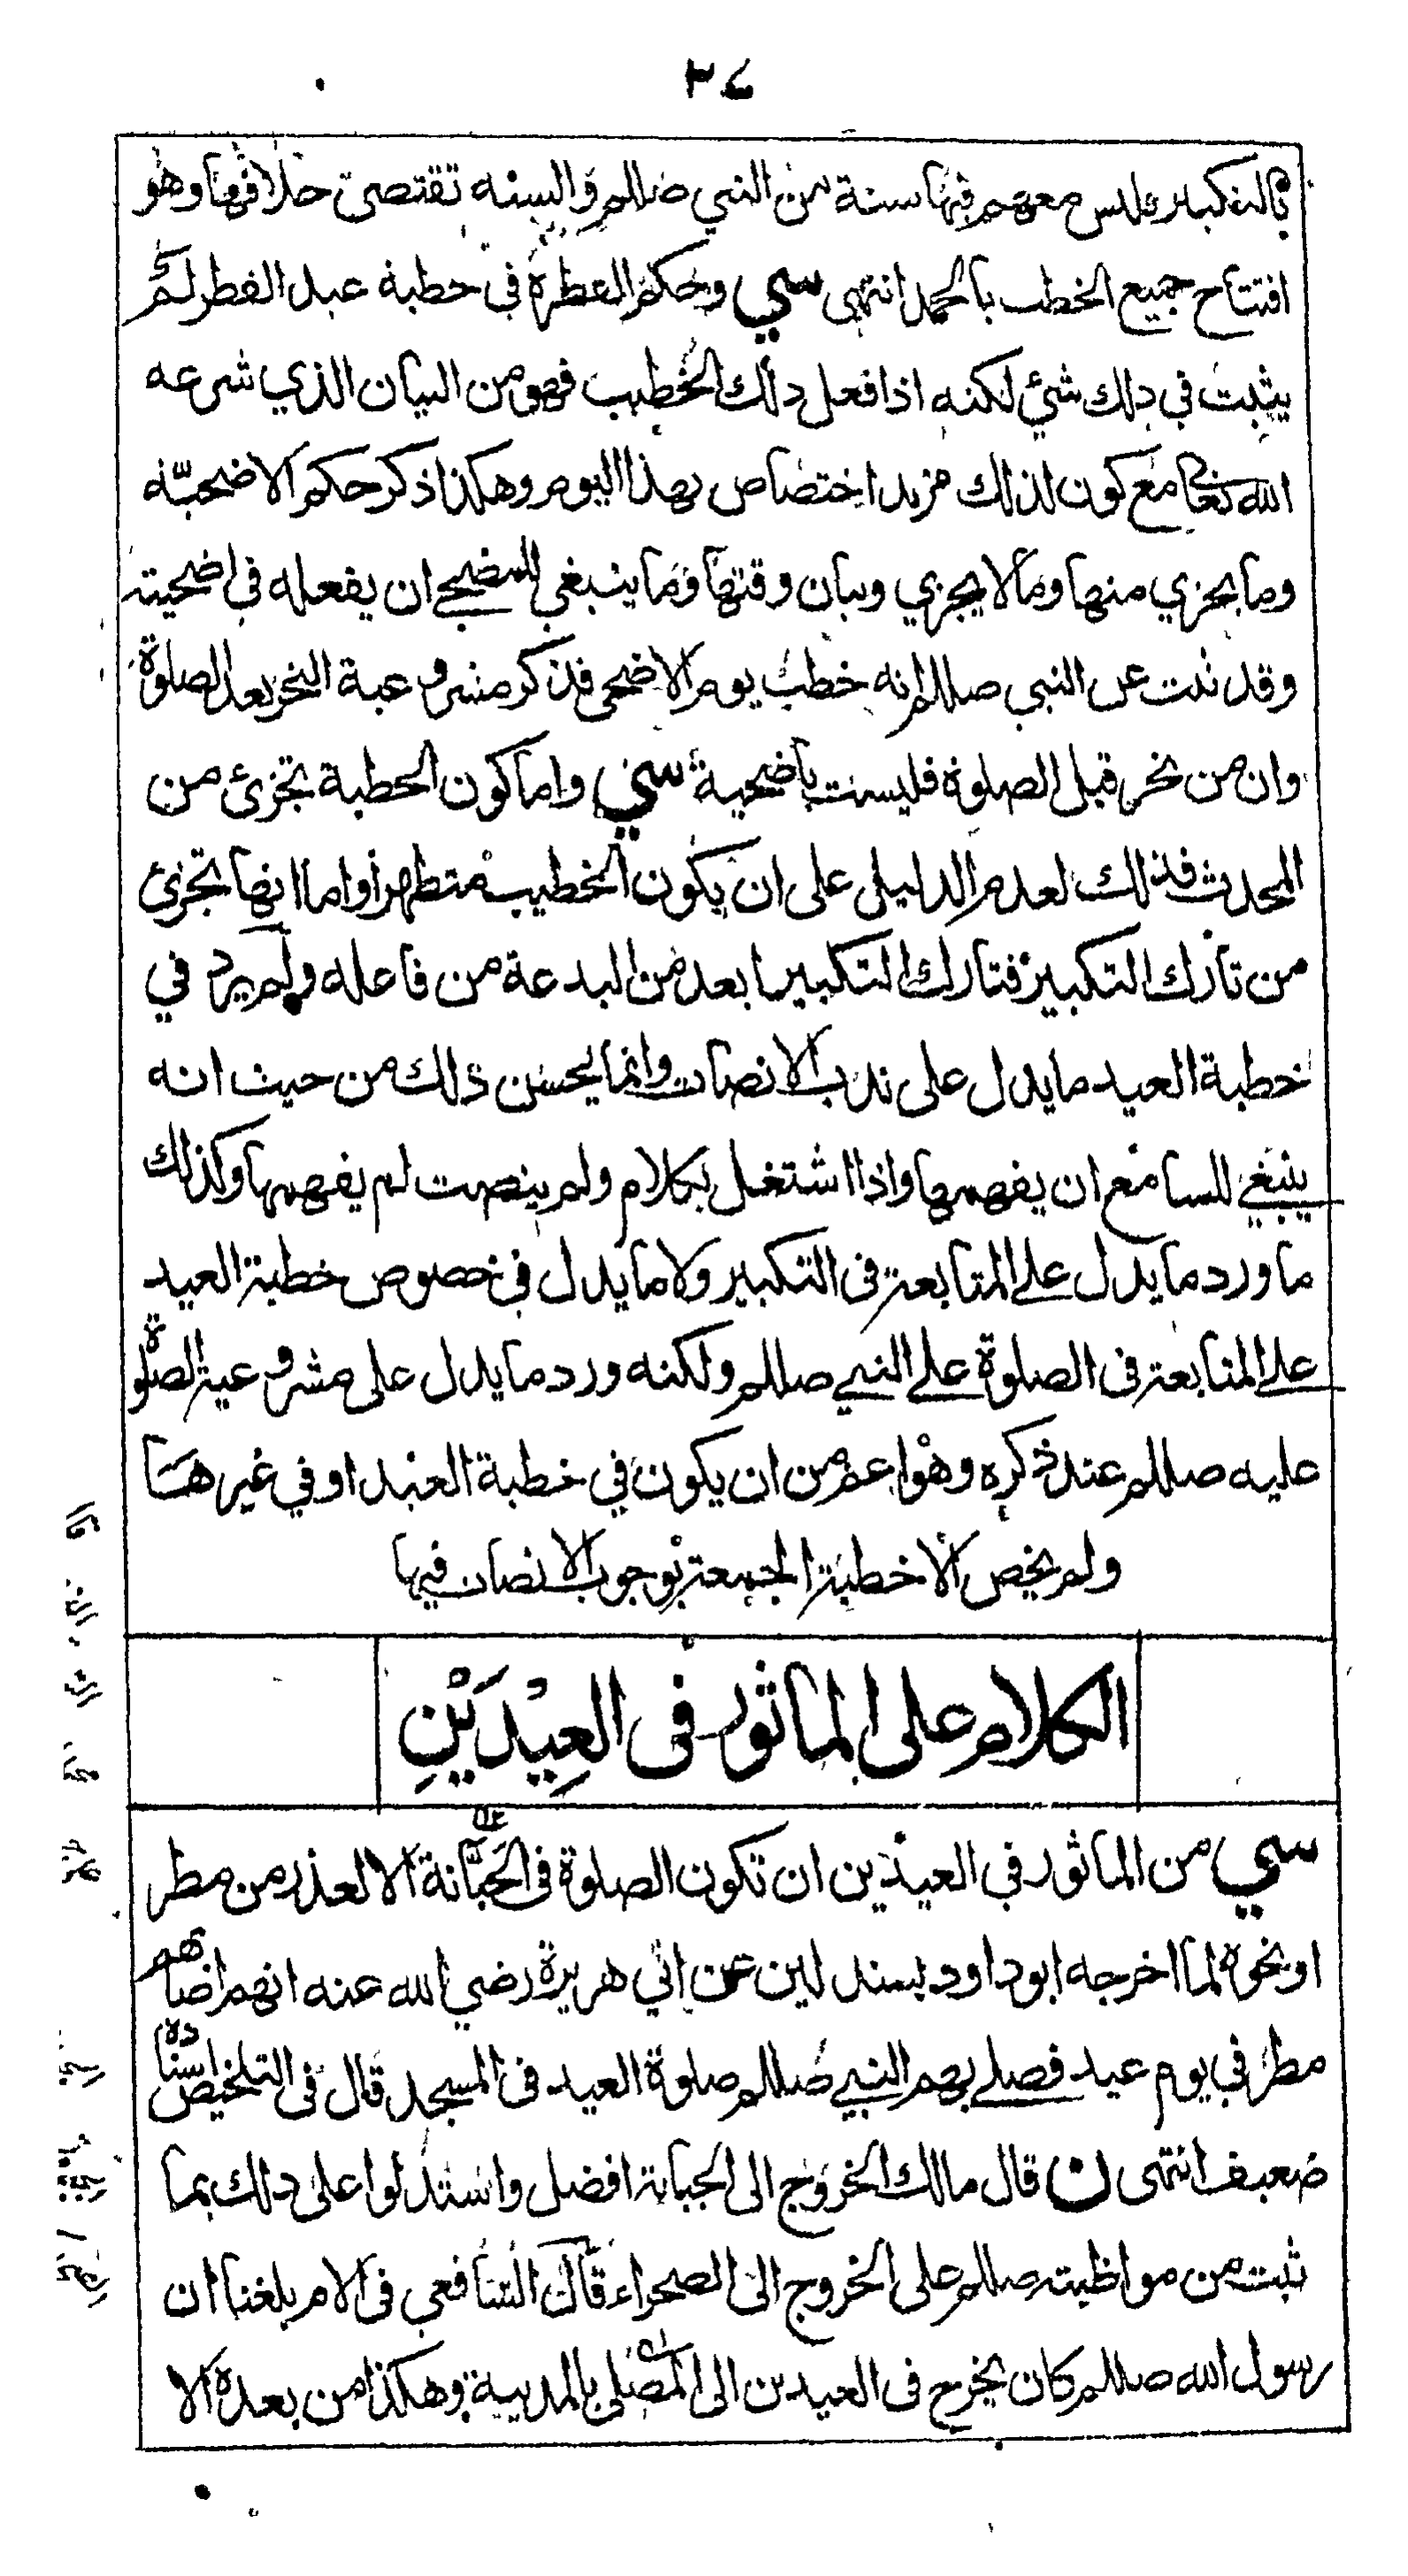 ٣٤
بالتكبير فليس معهم فيها سنة من النبي صللم والسنه تقتضي خلافها وهو
افتتاح جميع الخطب بالحمد انتهى سي وحكم الفطرة في خطبة عيد الفطر لم
يثبت في ذلك شئ لكنه اذا فعل ذلك الخطيب فهو من البيان الذي شرعه
الله تعا مع كون لذلك مزيد اختصاص بهذا اليوم وهكذا ذكر حكم الاضحيّة
وما يجزي منها وما لا يجزي وبيان وقتها وما ينبغي للمضحي ان يفعله في اضحيته
وقد ثبت عن النبي صللم انه خطب يوم الاضحى فذكر مشروعية النحر بعد الصلوة
وان من نحر قبل الصلوة فليست باضحية سي واما كون الخطبة تجزئ من
المحدث فذلك لعدم الدليل على ان يكون الخطيب متطهرا واما انها تجزئ
من تارك التكبير فتارك التكبير ابعد من البدعة من فاعله ولم يرد في
خطبة العيد ما يدل على ندب الانصات وانما يحسن ذلك من حيث انه
ينبغي للسامع ان يفهمها واذا اشتغل بكلام ولم ينصت لم يفهمها وكذلك
ما ورد ما يدل على المتابعة في التكبير ولا ما يدل في خصوص خطبة العيد
على المتابعة في الصلوة على النبي صللم ولكنه ورد ما يدل على مشروعية الصلوة
عليه صللم عند ذكره وهو اعم من ان يكون في خطبة العيد او في غيرها
ولم يخص الا خطبة الجمعة بوجوب الانصات فيها
الكلام على الماثور في العِيْدَيْنِ
سي من الماثور في العيدين ان تكون الصلوة في الجَبَّانة الا لعذر من مطر
او نحوه لما اخرجه ابو داود بسند لين عن ابي هريرة رضي الله عنه انهم اصابهم
مطر في يوم عيد فصلى بهم النبي صللم صلوة العيد في المسجد قال في التلخيص اسناده
ضعيف انتهى ن قال مالك الخروج الى الجبانة افضل واستدلوا على ذلك بما
ثبت من مواظبته صللم على الخروج الى الصحراء قال الشافعي في الام بلغنا ان
رسول الله صللم كان يخرج في العيدين الى المصلى بالمدينة وهكذا من بعده الا